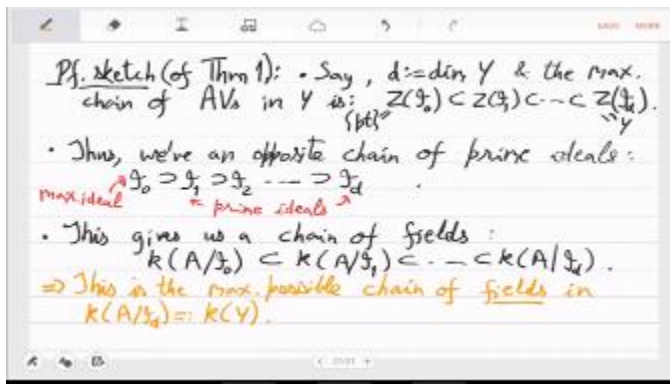 Pf. sketch (of Thm 1): • Say, d:=dim Y & the max.
chain of AVs in Y is: Z(𝔮₀) ⊂ Z(𝔮₁) ⊂ -- ⊂ Z(𝔮_d).
{pt} Y
• Thus, we've an opposite chain of prime ideals:
𝔮₀ ⊃ 𝔮₁ ⊃ 𝔮₂ --- ⊃ 𝔮_d .
max ideal prime ideals
• This gives us a chain of fields :
k(A/𝔮₀) ⊂ k(A/𝔮₁) ⊂ - -- ⊂ k(A/𝔮_d).
⇒ This is the max. possible chain of fields in
k(A/𝔮_d) =: k(Y).